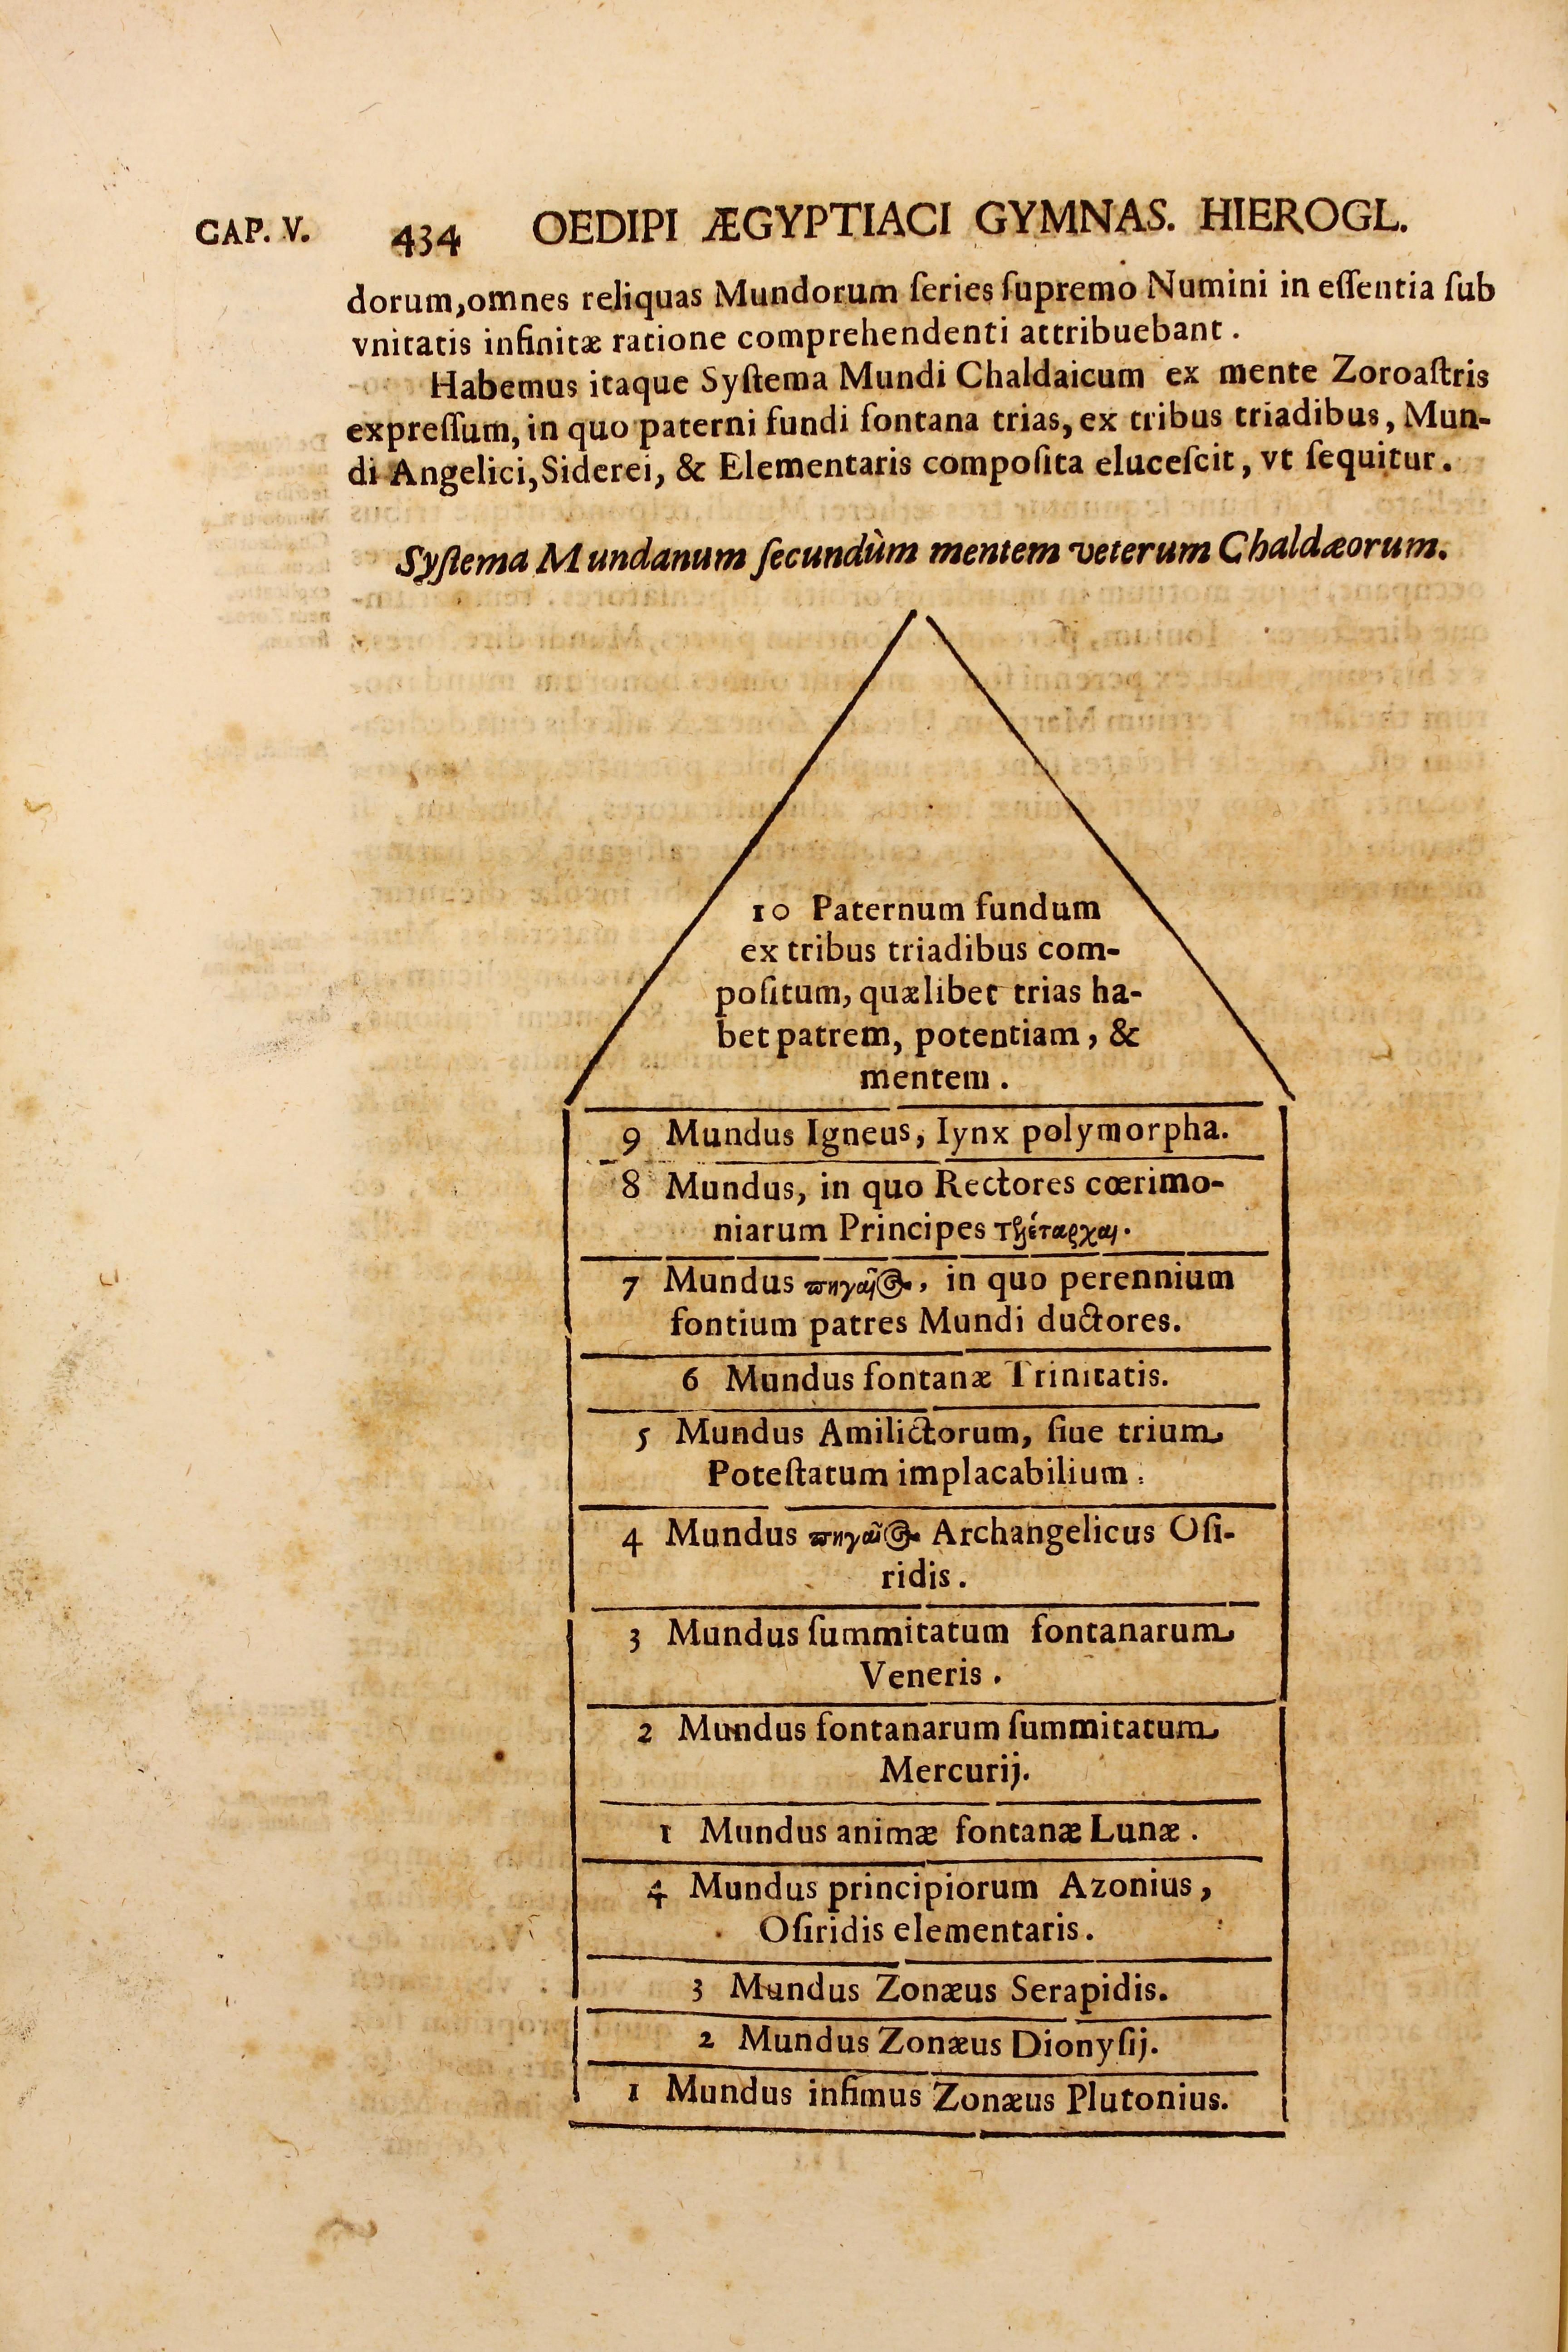 CAP. V. 434 OEDIPI ÆGYPTIACI GYMNAS. HIEROGL.
dorum,omnes reliquas Mundorum ſeries ſupremo Numini in eſſentia ſub
vnitatis infinitæ ratione comprehendenti attribuebant .
Habemus itaque Syſtema Mundi Chaldaicum ex mente Zoroaſtris
expreſſum, in quo paterni fundi fontana trias, ex tribus triadibus, Mun-
di Angelici,Siderei, & Elementaris compoſita eluceſcit, vt ſequitur.
Syſtema Mundanum ſecundùm mentem veterum Chaldæorum.
10 Paternum fundum
ex tribus triadibus com-
poſitum, quælibet trias ha-
bet patrem, potentiam, &
mentem .
9 Mundus Igneus, Iynx polymorpha.
8 Mundus, in quo Rectores cœrimo-
niarum Principes τελέταρχαι.
7 Mundus πηγαῖος, in quo perennium
fontium patres Mundi ductores.
6 Mundus fontanæ Trinitatis.
5 Mundus Amilictorum, ſiue trium
Poteſtatum implacabilium.
4 Mundus πηγαῖος Archangelicus Oſi-
ridis .
3 Mundus ſummitatum fontanarum
Veneris .
2 Mundus fontanarum ſummitatum
Mercurij.
1 Mundus animæ fontanæ Lunæ .
4 Mundus principiorum Azonius,
Oſiridis elementaris.
3 Mundus Zonæus Serapidis.
2 Mundus Zonæus Dionyſij.
1 Mundus infimus Zonæus Plutonius.